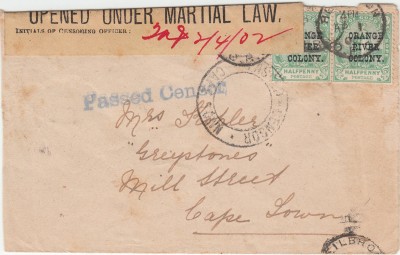 OPENED UNDER MARTIAL LAW.
INITIALS OF CENSORING OFFICER:
2/4/02
ORANGE
RIVER
COLONY.
HALFPENNY
POSTAGE
ORANGE
RIVER
COLONY.
HALFPENNY
POSTAGE
Passed Censor
CENSOR
Mrs
Greystones
Mill Street
Cape Town
HEILBRON